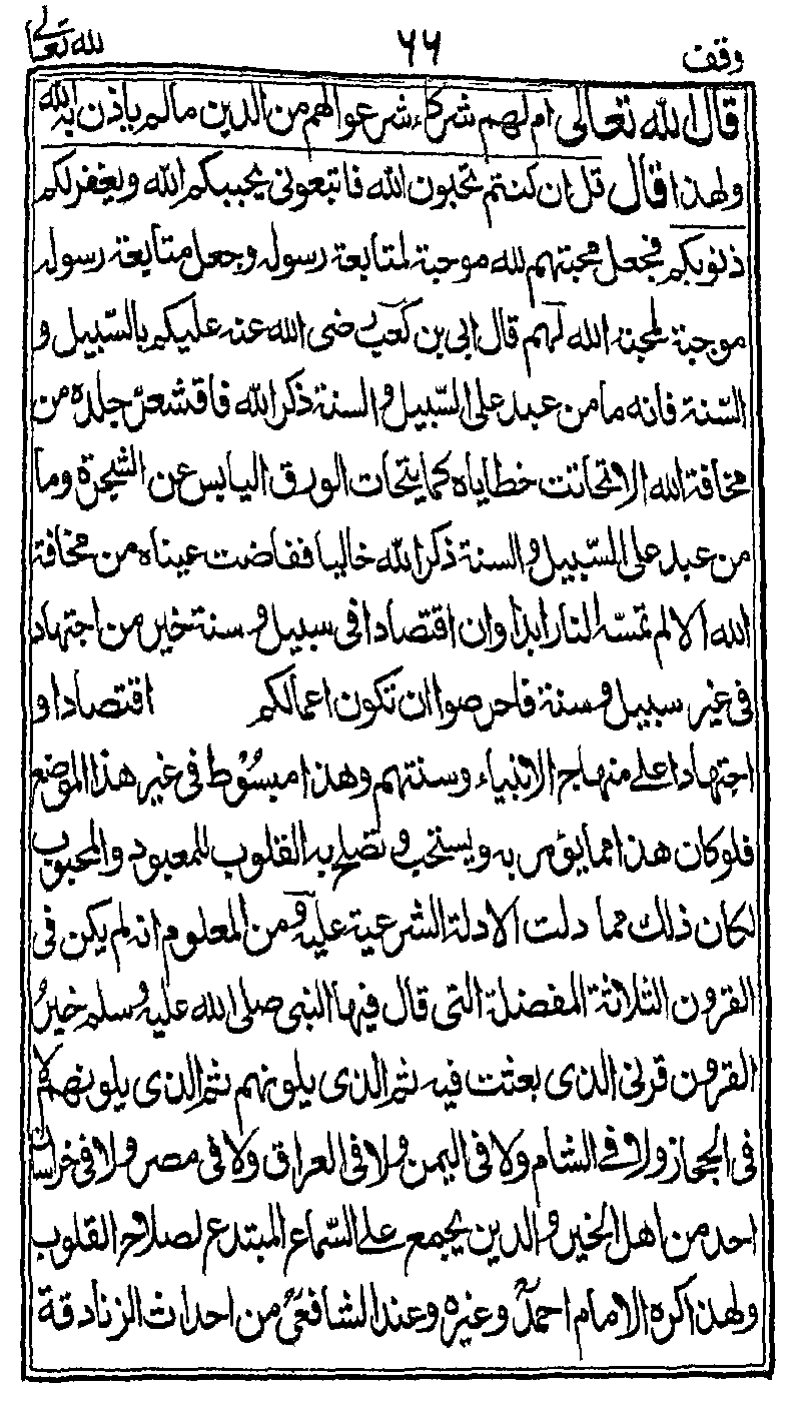 وقف ٦٦ لله تعالى
قال الله تعالى ام لهم شركاء شرعوا لهم من الدين مالم ياذن به الله
ولهذا قال قل ان كنتم تحبون الله فاتبعونى يحببكم الله ويغفر لكم
ذنوبكم فجعل محبتهم لله موجبة لمتابعة رسوله وجعل متابعة رسوله
موجبة لمحبة الله لهم قال ابى بن كعب رضى الله عنه عليكم بالسّبيل و
السّنة فانه ما من عبد على السّبيل والسنة ذكر الله فاقشعرّ جلده من
مخافة الله الا تحاتت خطاياه كما يتحات الورق اليابس عن الشجرة وما
من عبد على السّبيل والسنة ذكر الله خاليا ففاضت عيناه من مخافة
الله الا لم تمسّه النار ابدا وان اقتصادا فى سبيل وسنة خير من اجتهاد
فى غير سبيل وسنة فاحرصوا ان تكون اعمالكم اقتصادا و
اجتهادا على منهاج الانبياء وسنتهم وهذا مبسُوْط فى غير هذا الموضع
فلو كان هذا مما يؤمر به ويستحب و تصلح به القلوب للمعبود والمحبوب
لكان ذلك مما دلت الادلة الشرعية عليه ومن المعلوم انه لم يكن فى
القرون الثلاثة المفضلة التى قال فيها النبى صلى الله عليه وسلم خيرُ
القرون قرنى الذى بعثت فيه ثم الذى يلونهم ثم الذى يلونهم لا
فى الحجاز ولا فى الشام ولا فى اليمن ولا فى العراق ولا فى مصر ولا فى خراسان
احد من اهل الخير والدين يجمع على السّماع المبتدع لصلاح القلوب
ولهذا كره الامام احمدؒ وغيره وعند الشافعىؒ من احداث الزنادقة